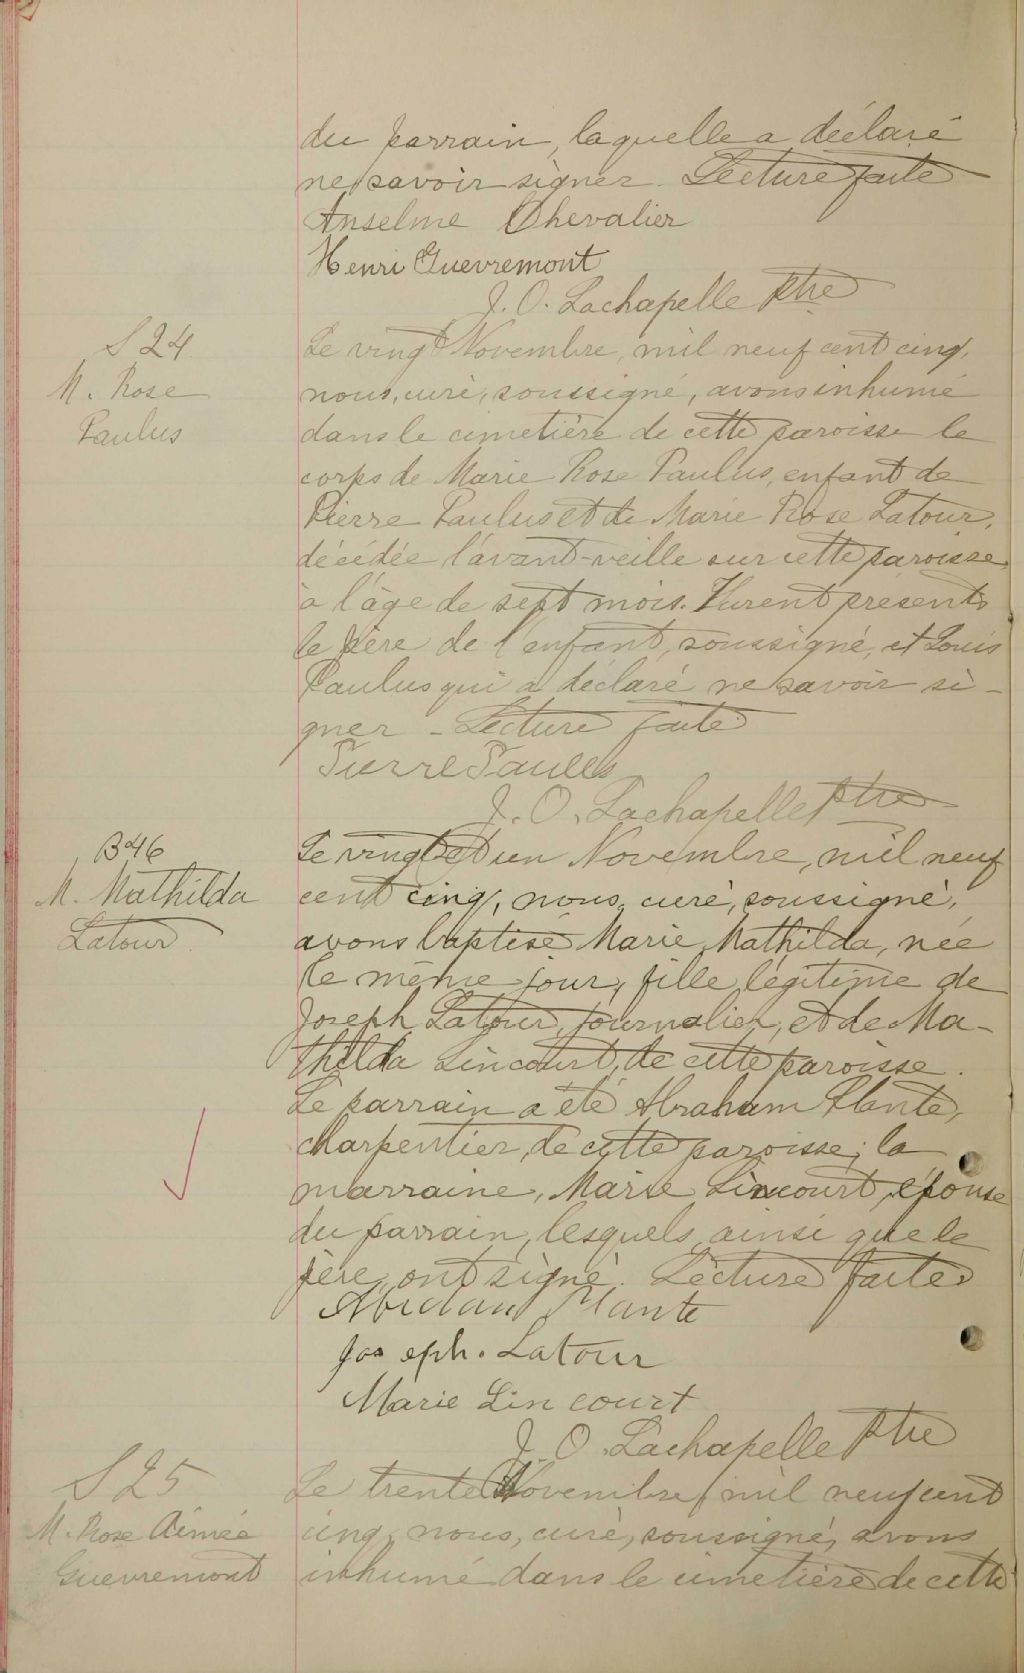 du parrain, laquelle a déclaré
ne savoir signer. Lecture faite
Anselme Chevalier
Henri Guevremont
J. O. Lachapelle Ptre
S 24
M. Rose
Paulus
Le vingt Novembre, mil neuf cent cinq,
nous, curé, soussigné, avons inhumé
dans le cimetière de cette paroisse le
corps de Marie Rose Paulus, enfant de
Pierre Paulus et de Marie Rose Latour,
décédée l'avant-veille sur cette paroisse,
à l'âge de sept mois. Furent présents
le père de l'enfant, soussigné, et Louis
Paulus qui a déclaré ne savoir si-
gner - Lecture faite
Pierre Paules
J. O. Lachapelle Ptre
B 46
M. Mathilda
Latour
Le vingt et un Novembre, mil neuf
cent cinq, nous, curé, soussigné,
avons baptisé Marie Mathilda, née
le même jour, fille légitime de
Joseph Latour, journalier, et de Ma-
thilda Lincourt, de cette paroisse.
Le parrain a été Abraham Plante,
charpentier, de cette paroisse; la
marraine, Marie Lincourt, épouse
du parrain, lesquels ainsi que le
père, ont signé. Lecture faite
Plante
Joseph. Latour
Marie Lincourt
J. O. Lachapelle Ptre
S 25
M. Rose Aimée
Guevremont
Le trente Novembre, mil neuf cent
cinq, nous, curé, soussigné, avons
inhumé dans le cimetière de cette